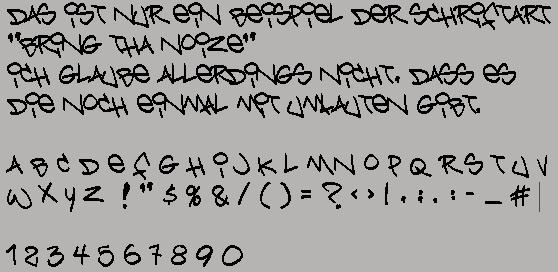 DAS IST NUR EIN BEISPIEL DER SCHRIFTART
"BRING THA NOIZE"
ICH GLAUBE ALLERDINGS NICHT, DASS ES
DIE NOCH EINMAL MIT UMLAUTEN GIBT.
A B C D E F G H I J K L M N O P Q R S T U V
W X Y Z ! " $ % & / ( ) = ? < > | . : , ; - _ #
1 2 3 4 5 6 7 8 9 0